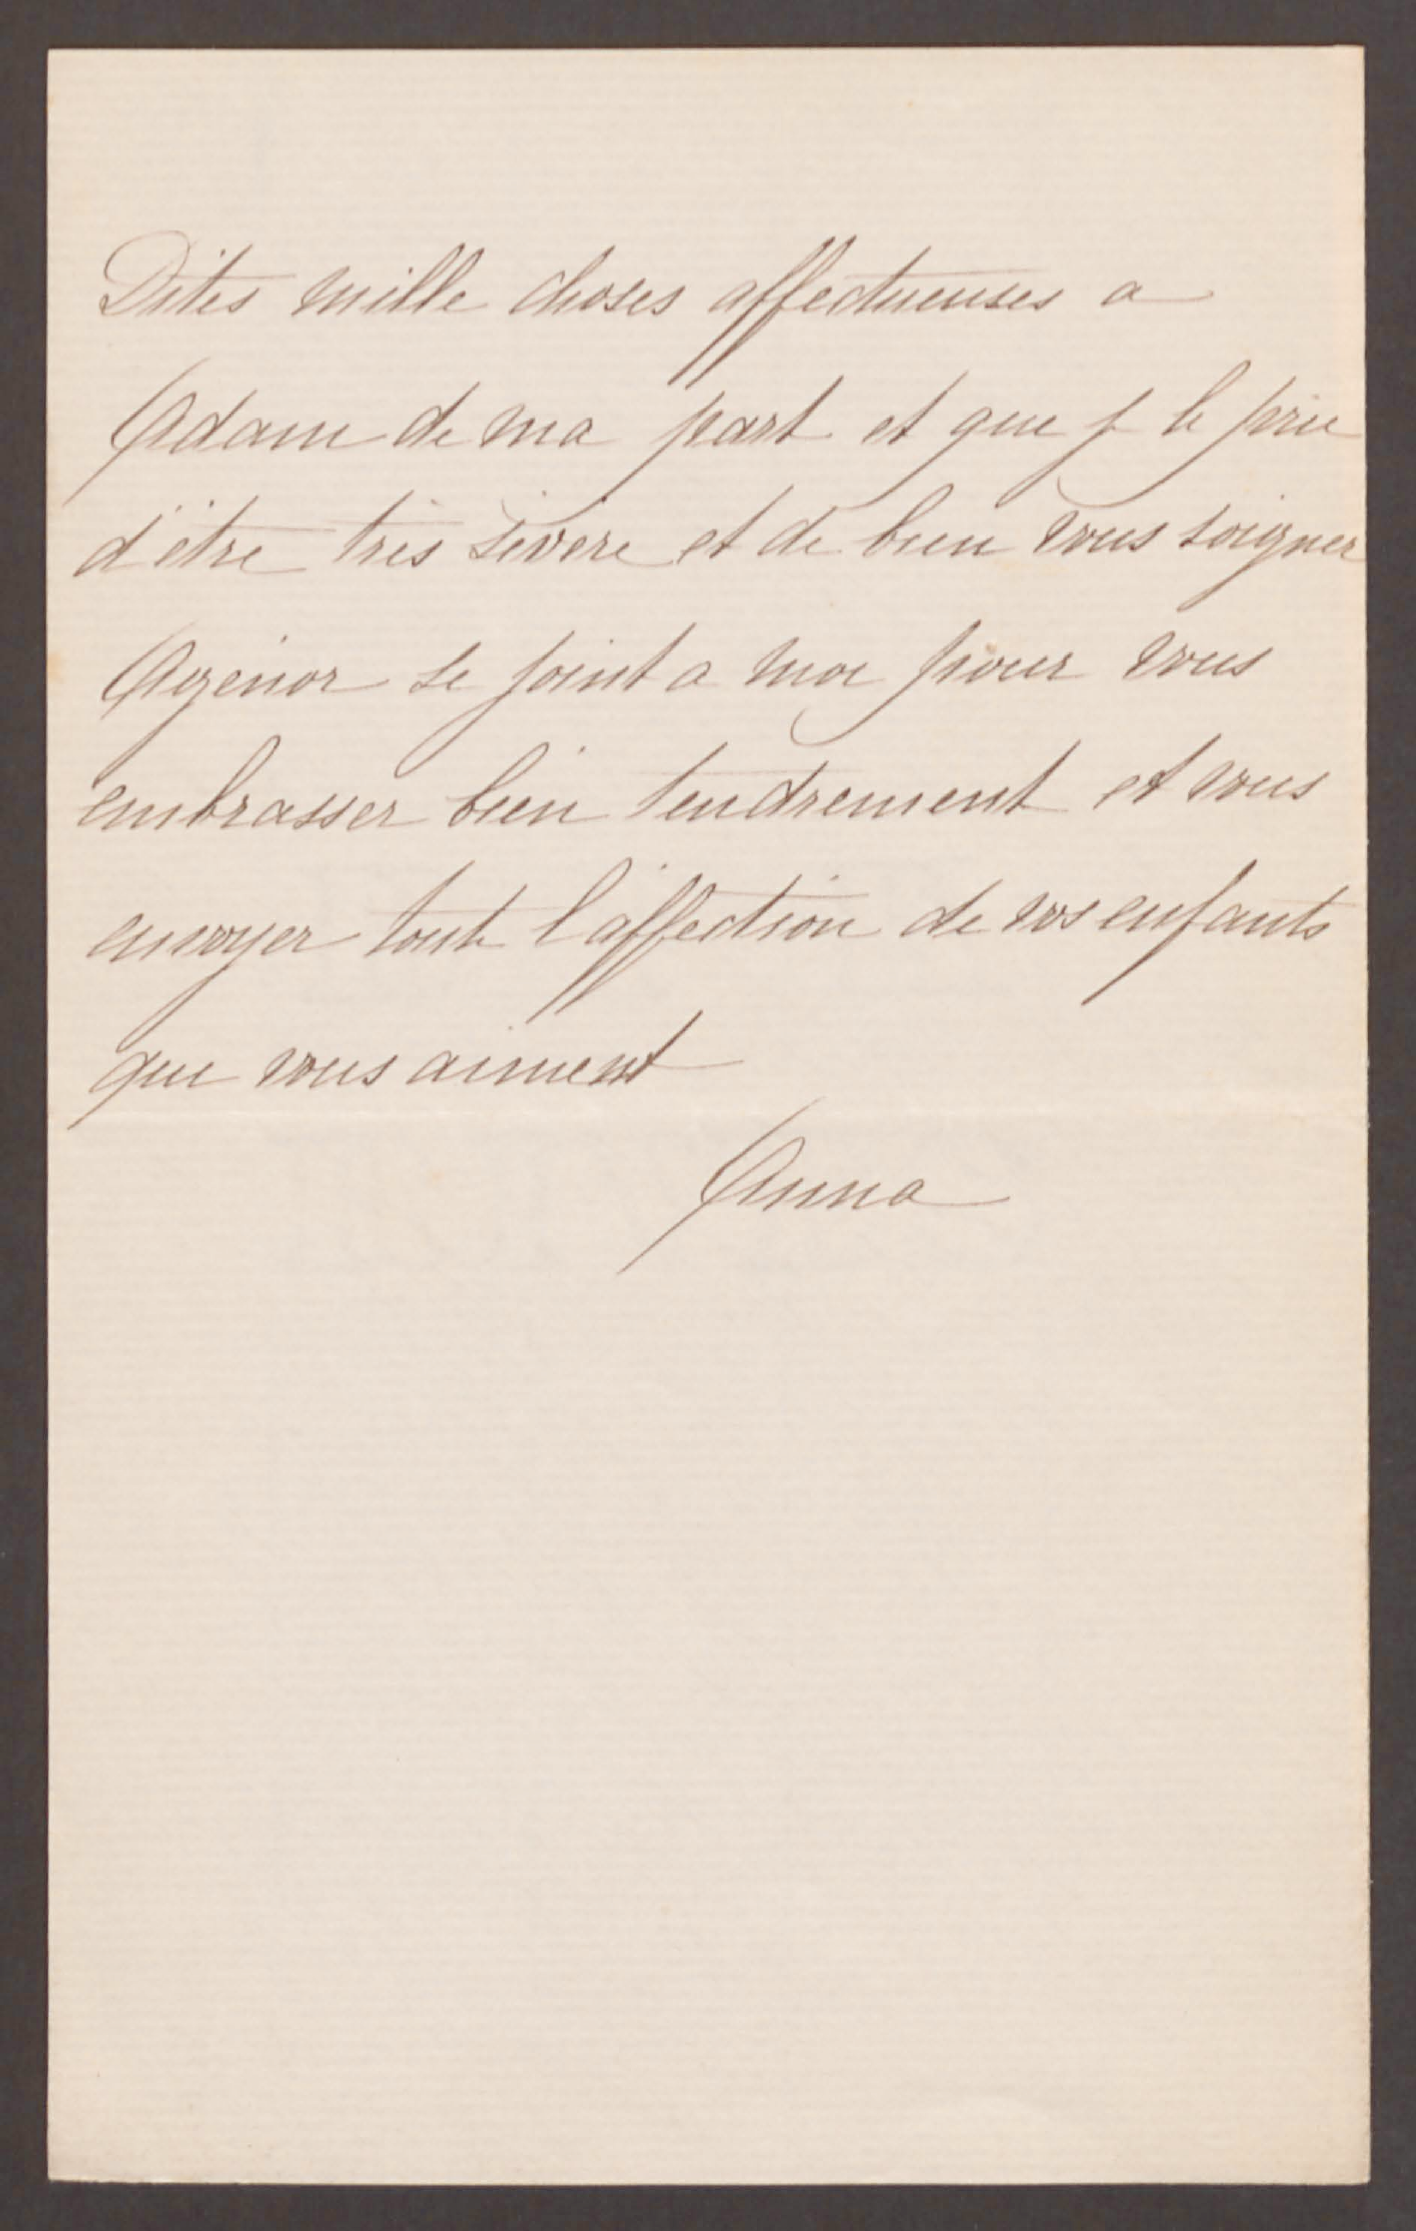 Dites mille choses affectueuses a
Adam de ma part et que j le prie
d'être très sévere et de bien vous soigner
Agenor se joint a moi pour vous
embrasser bien tendrement et vous
envoyer toute l'affection de vos enfants
qui vous aiment
Anna